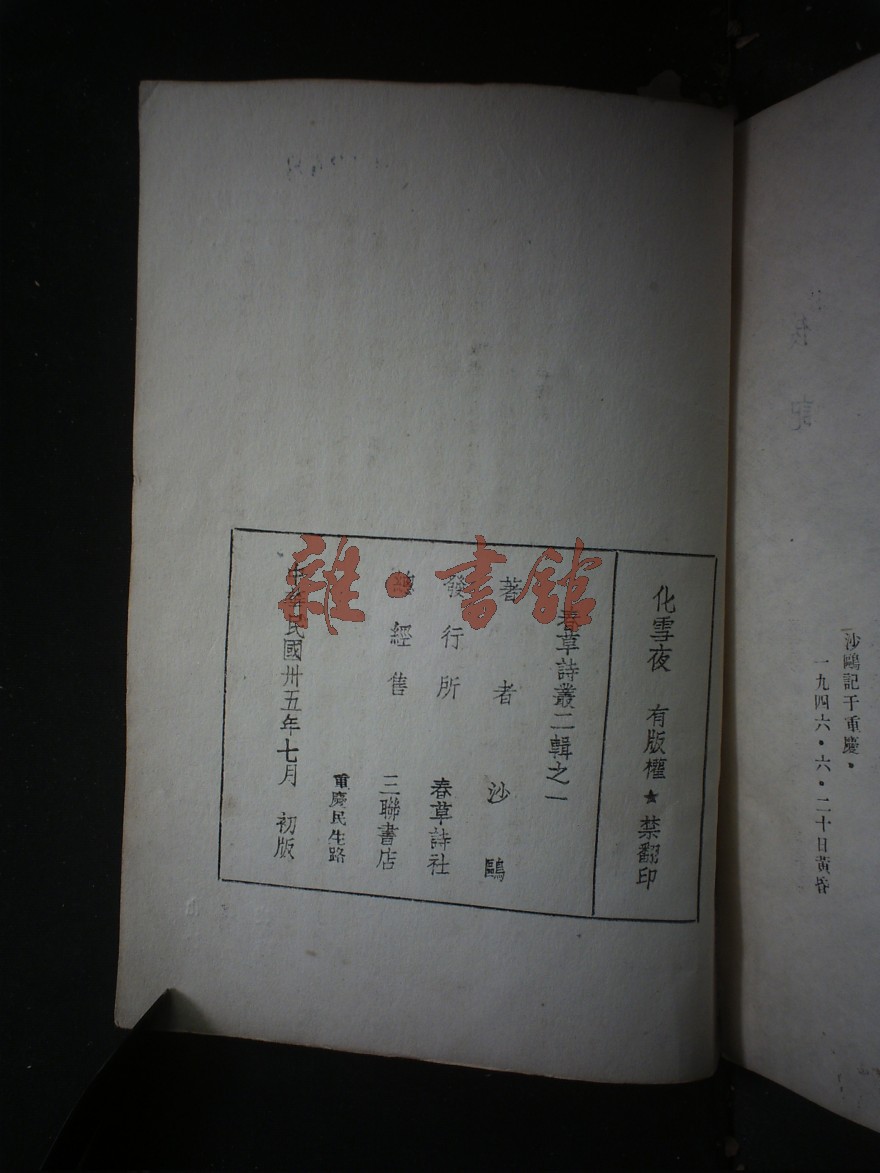 沙鷗記于重慶・
一九四六・六・二十日黄昏
化雪夜 有版權★禁翻印
春草詩叢二輯之一
著者 沙鷗
發行所 春草詩社
總經售 三聯書店
重慶民生路
中華民國卅五年七月 初版
雜・書館